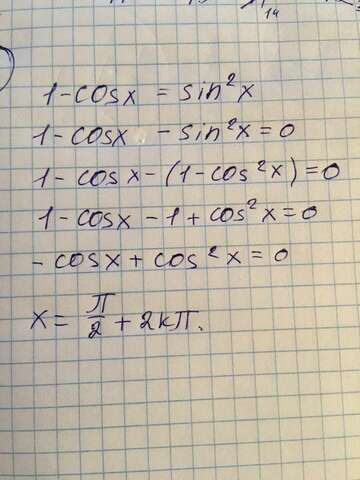 14
1-cosx = sin²x
1-cosx - sin²x=0
1-cosx-(1-cos²x)=0
1-cosx-1+cos²x=0
-cosx+cos²x=0
x= π/2 + 2кπ.